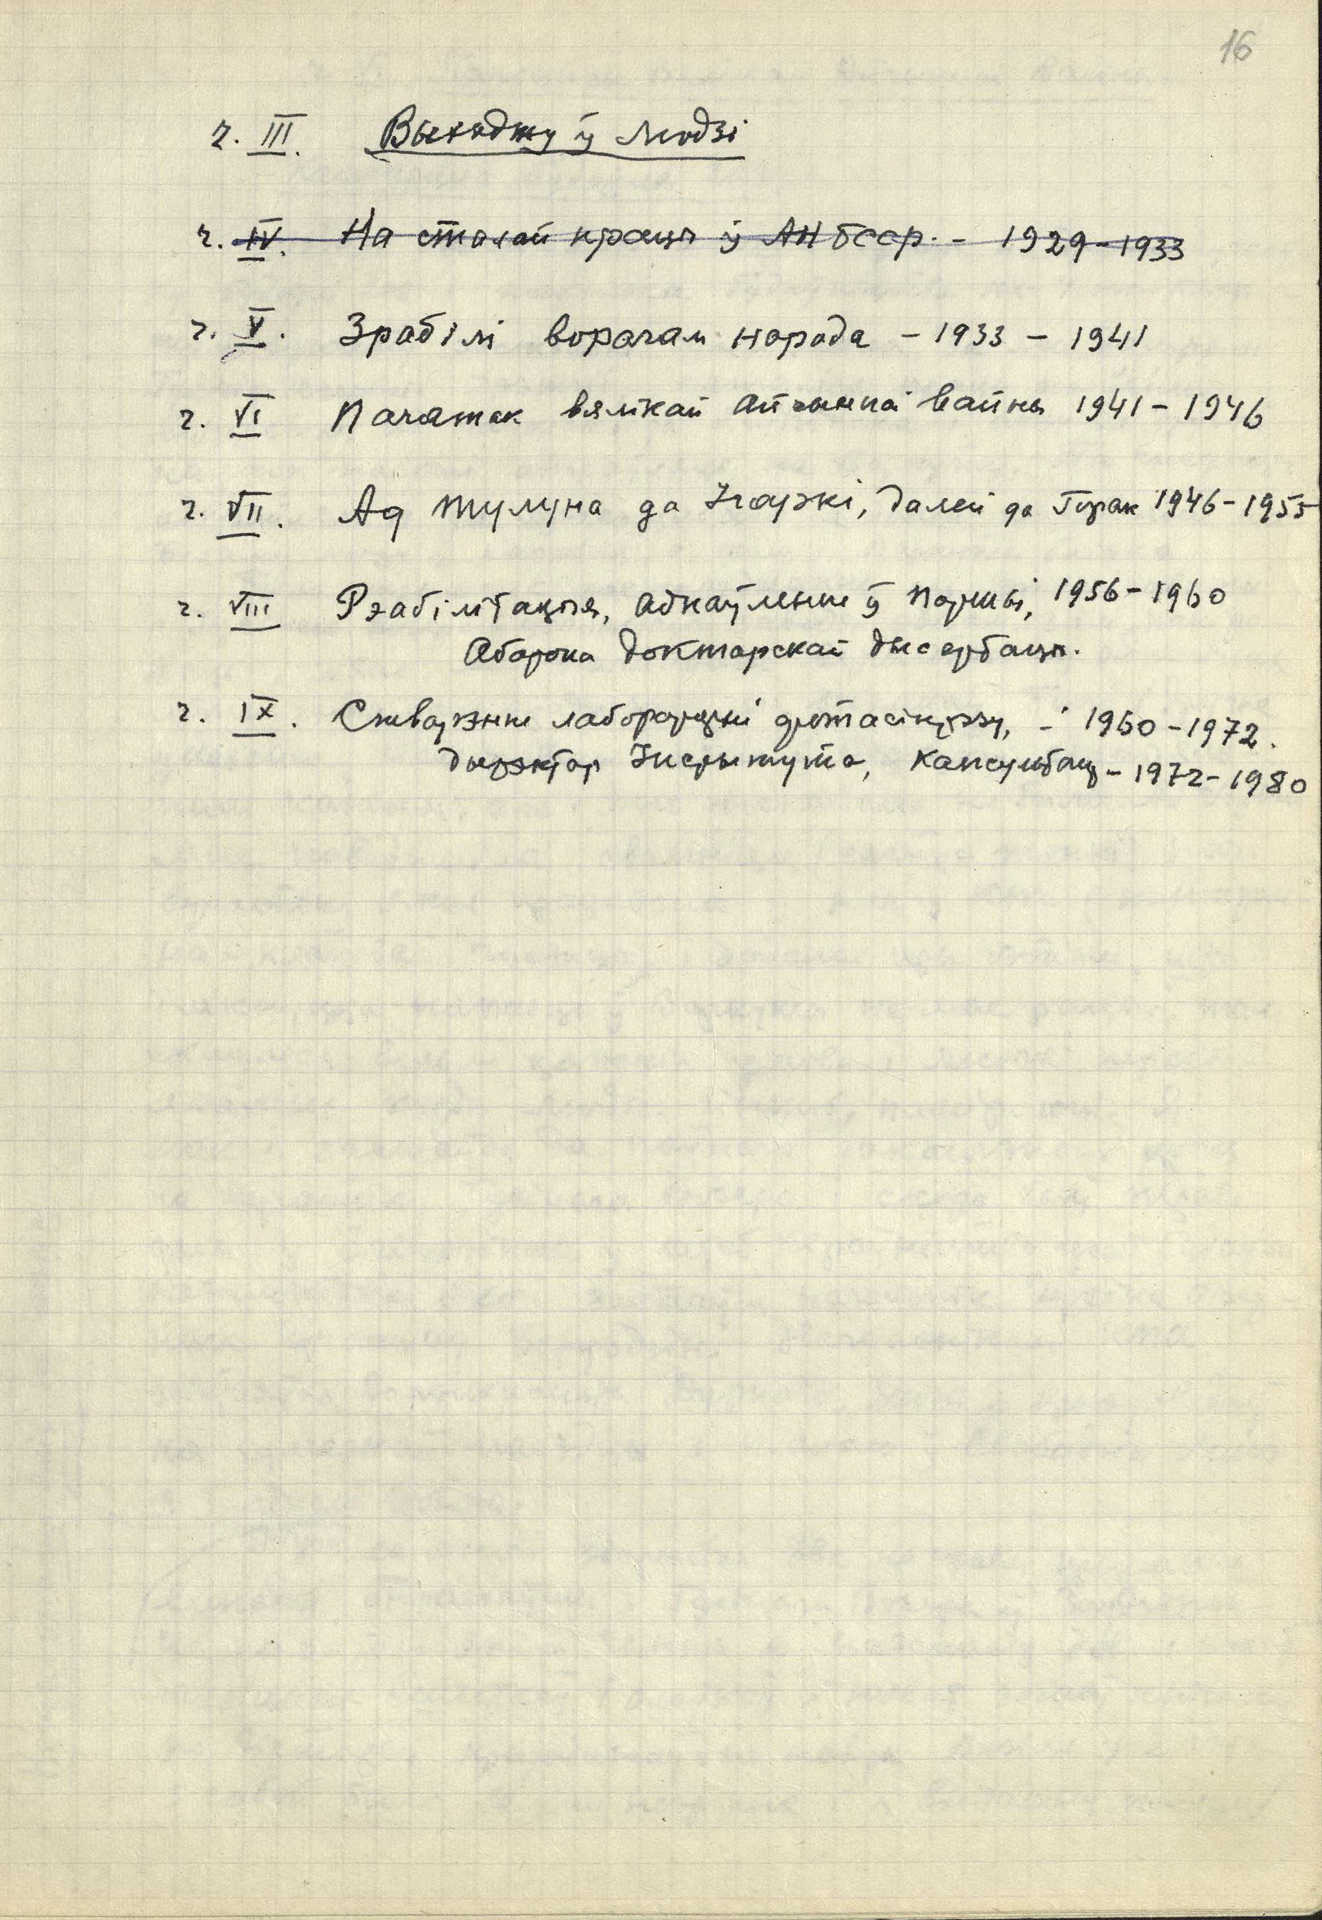 16
ч. III. Выхаджу ў людзі
ч. IV. На сталай працы ў АН БССР. - 1929-1933
ч. V. Зрабілі ворагам народа - 1933 - 1941
ч. VI Пачатак вялікай айчыннай вайны 1941-1946
ч. VII. Ад Тулуна да Ігаркі, далей да Горак 1946-1955
ч. VIII Рэабілітацыя, аднаўленне ў партыі, 1956-1960
Абарона доктарскай дысертацыі.
ч. IX. Стварэнне лабораторыі фотасінтэзу, - 1960-1972.
дырэктар Інстытута, кансультант - 1972-1980